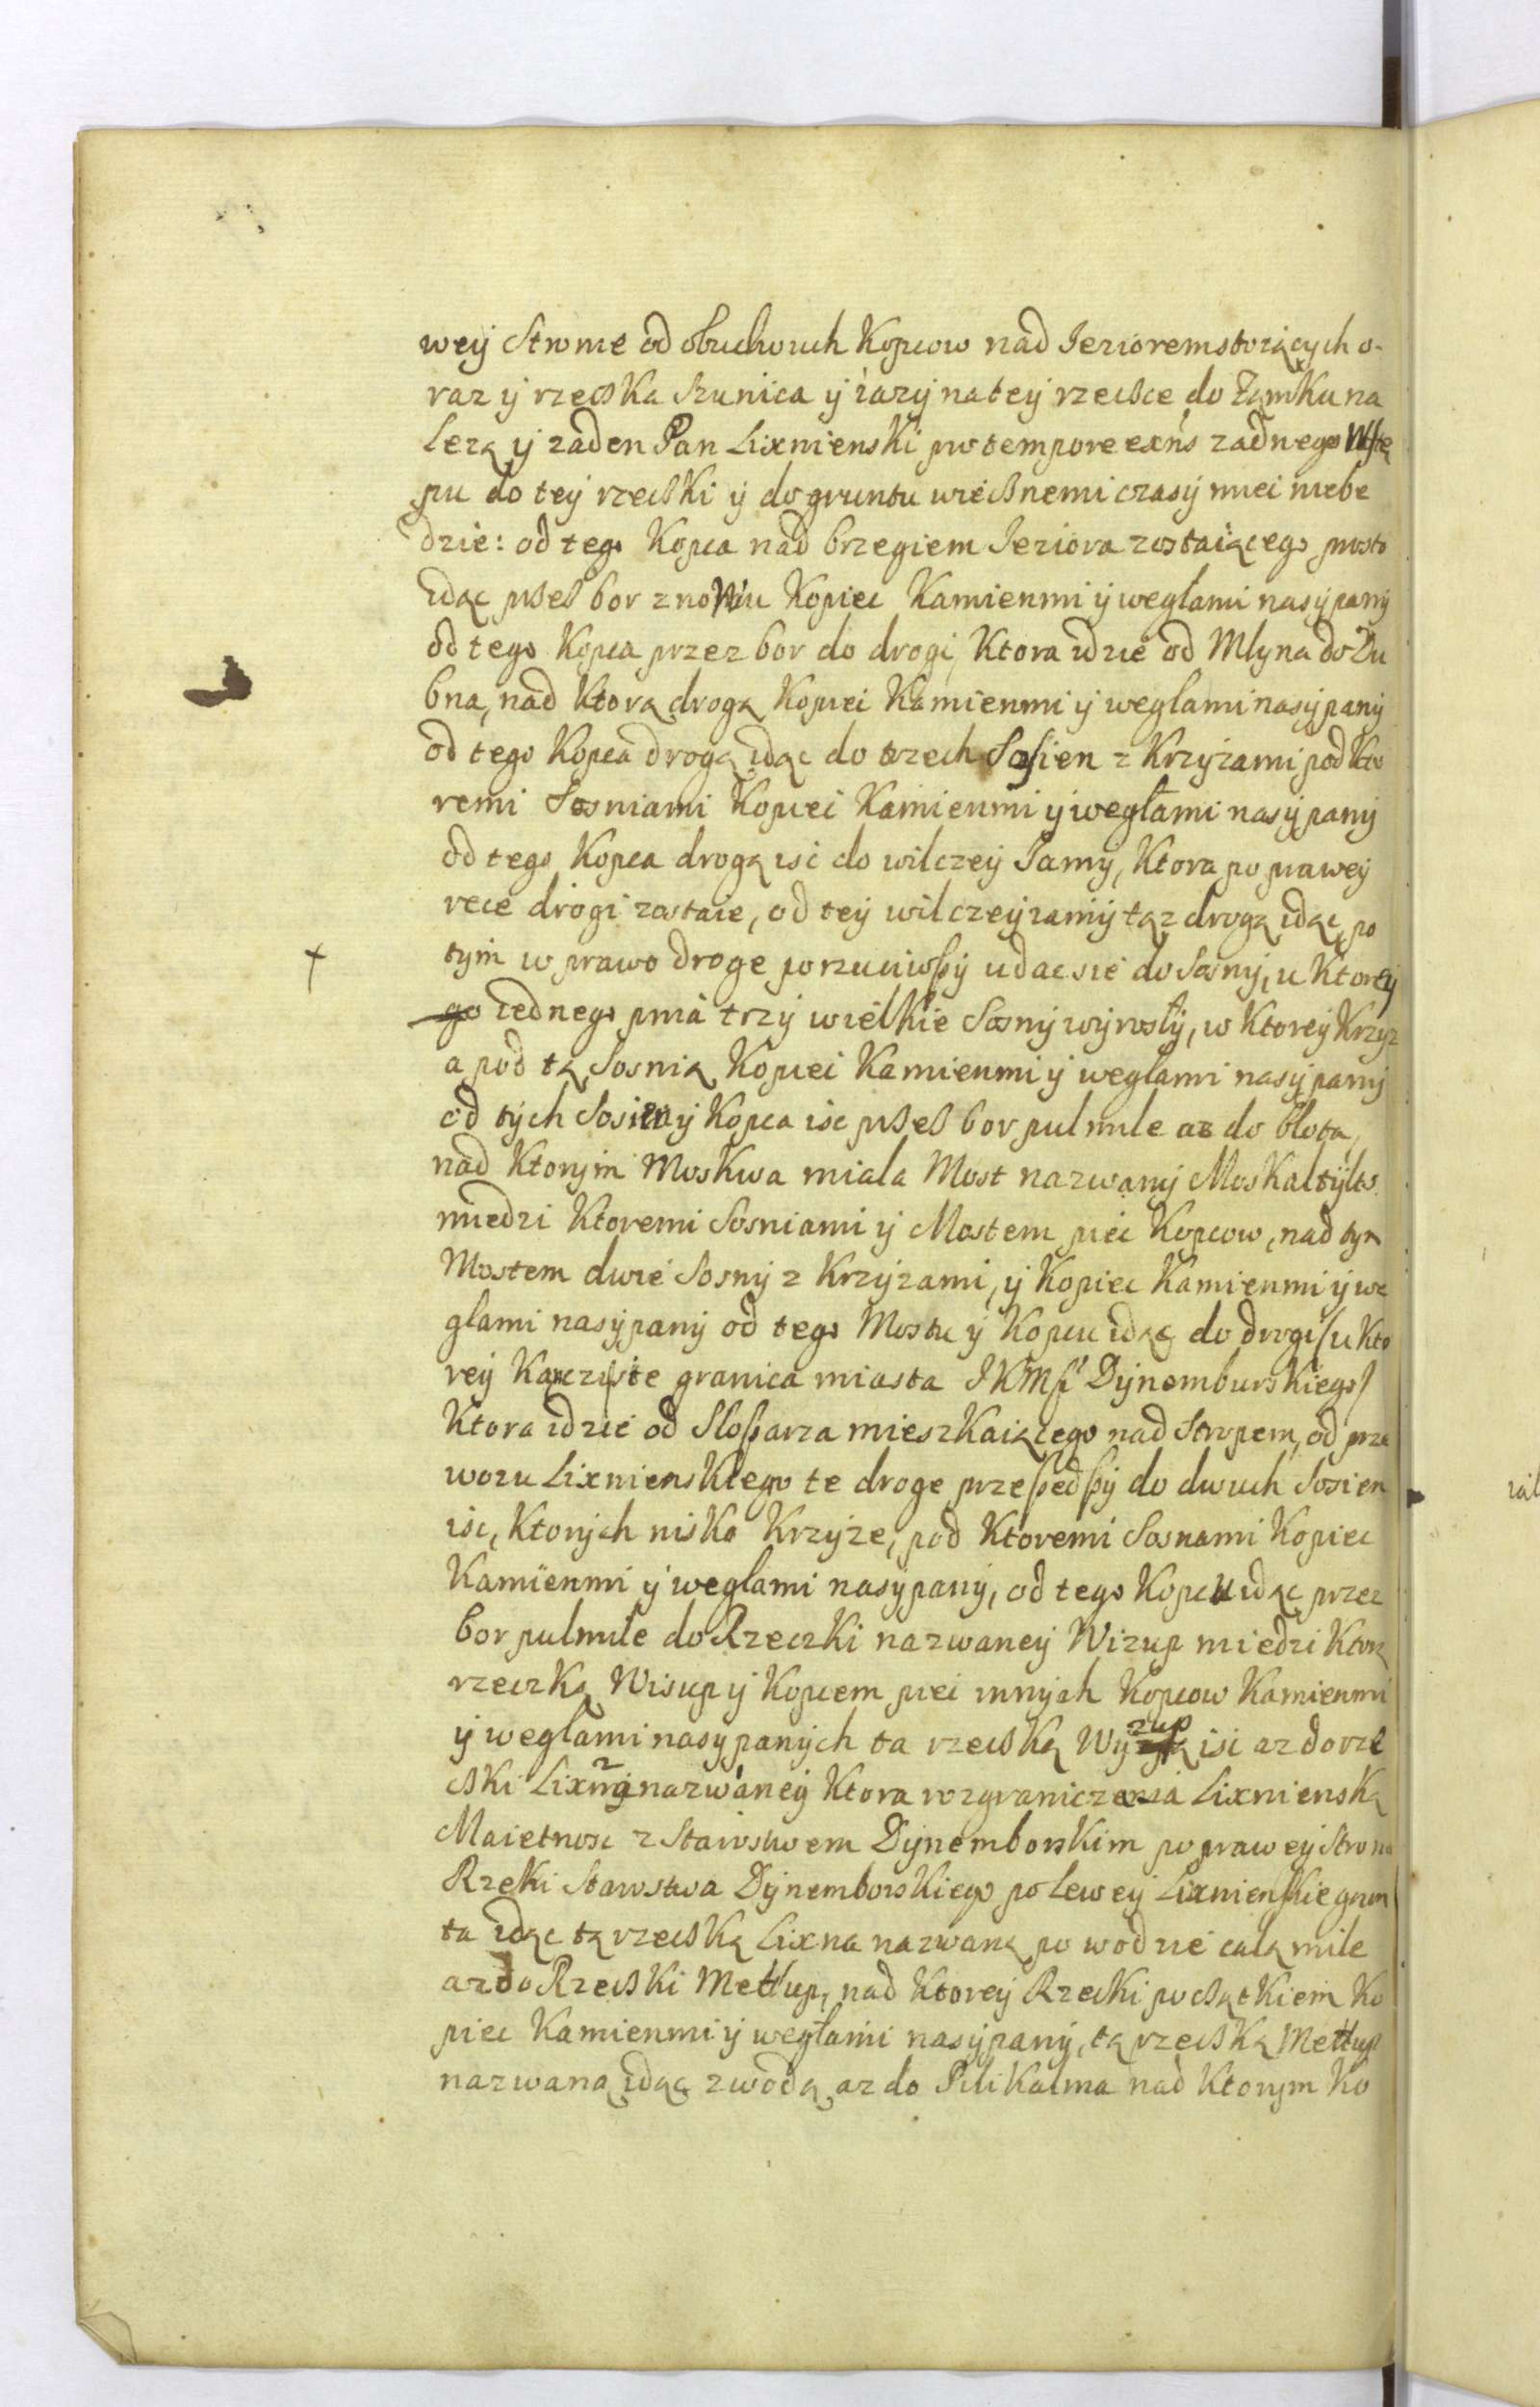 weÿ Stronie od obuchwuch Kopcow nad Ieziorem stoiących o-
raz ÿ rzeczka Szunica ÿ iazÿ na teÿ rzeczce do Zamku na
lezą ÿ zaden Pan Lixnienski pro tempore exns zadnego Wstę
pu do teÿ rzeczki ÿ do gruntu wiecznemi czasÿ miec niebe
dzie: od tego Kopca nad brzegiem Ieziora zostaiącego prosto
idąc przez bor znowu Kopiec Kamienmi ÿ weglami nasÿpanÿ
od tego Kopca przez bor do drogi, Ktora idzie od Mlyna do Du
bna, nad Ktorą drogą Kopiec Kamienmi ÿ weglami nasÿpanÿ
od tego Kopca drogą idąc do trzech Sosien z Krzÿzami pod Kto
remi Sosniami Kopiec Kamienmi ÿ weglami nasÿpanÿ
od tego Kopca drogą isc do wilczeÿ Iamÿ, Ktora po prawey
rece drogi zostaie, od teÿ wilczeÿ iamÿ tąz drogą idąc, po
tÿm w prawo droge porzuciwszÿ udac sie do Sosnÿ, u Ktoreÿ
go iednego pnia trzÿ wielkie Sosnÿ wÿroslÿ, w Ktoreÿ Krzÿz
a pod tą Sosnią Kopiec Kamienmi ÿ weglami nasÿpanÿ
od tÿch Sosien ÿ Kopca isc przez bor pulmile az do blota,
nad Ktorÿm Moskwa miala Most nazwanÿ Moskaltÿlts
miedzi Ktoremi Sosniami ÿ Mostem piec Kopcow, nad tym
Mostem dwie Sosnÿ z Krzÿzami, ÿ Kopiec Kamienmi ÿ we
glami nasÿpanÿ od tego Mostu ÿ Kopcu idąc do drogi (u Kto
reÿ Karczysče granica miasta IKMsci Dÿnemburskiego)
Ktora idzie od Slosarza mieszkaiącego nad Stropem, od prze
wozu Lixnienskiego te droge przeszedszÿ do dwuch Sosien
isc, Ktorÿch nisko Krzÿze, pod Ktoremi Sosnami Kopiec
Kamienmi ÿ weglami nasÿpanÿ, od tego Kopcu idąc przez
bor pulmile do Rzeczki nazwaneÿ Wizup miedzi Ktorą
rzeczką Wisup ÿ Kopcem piec innÿch Kopcow Kamienmi
ÿ weglami nasypanÿch ta rzeczką Wÿzup isc az do rze
czki Lixnÿ nazwaneÿ Ktora rozgranicza Lixnienską
Maietnosc z Starostwem Dÿnemborskim po praweÿ Stronie
Rzeki Starostwa Dÿnemborskiego po leweÿ Lixnienskie grun
ta idąc tą rzeczką Lixna nazwaną po wodzie calą mile
az do Rzeczki Metlup, nad Ktoreÿ Rzeczki początkiem Ko
piec Kamienmi ÿ weglami nasÿpanÿ, tą rzeczką Metlup
nazwaną idąc z wodą az do Pilikalna nad Ktorym Ko